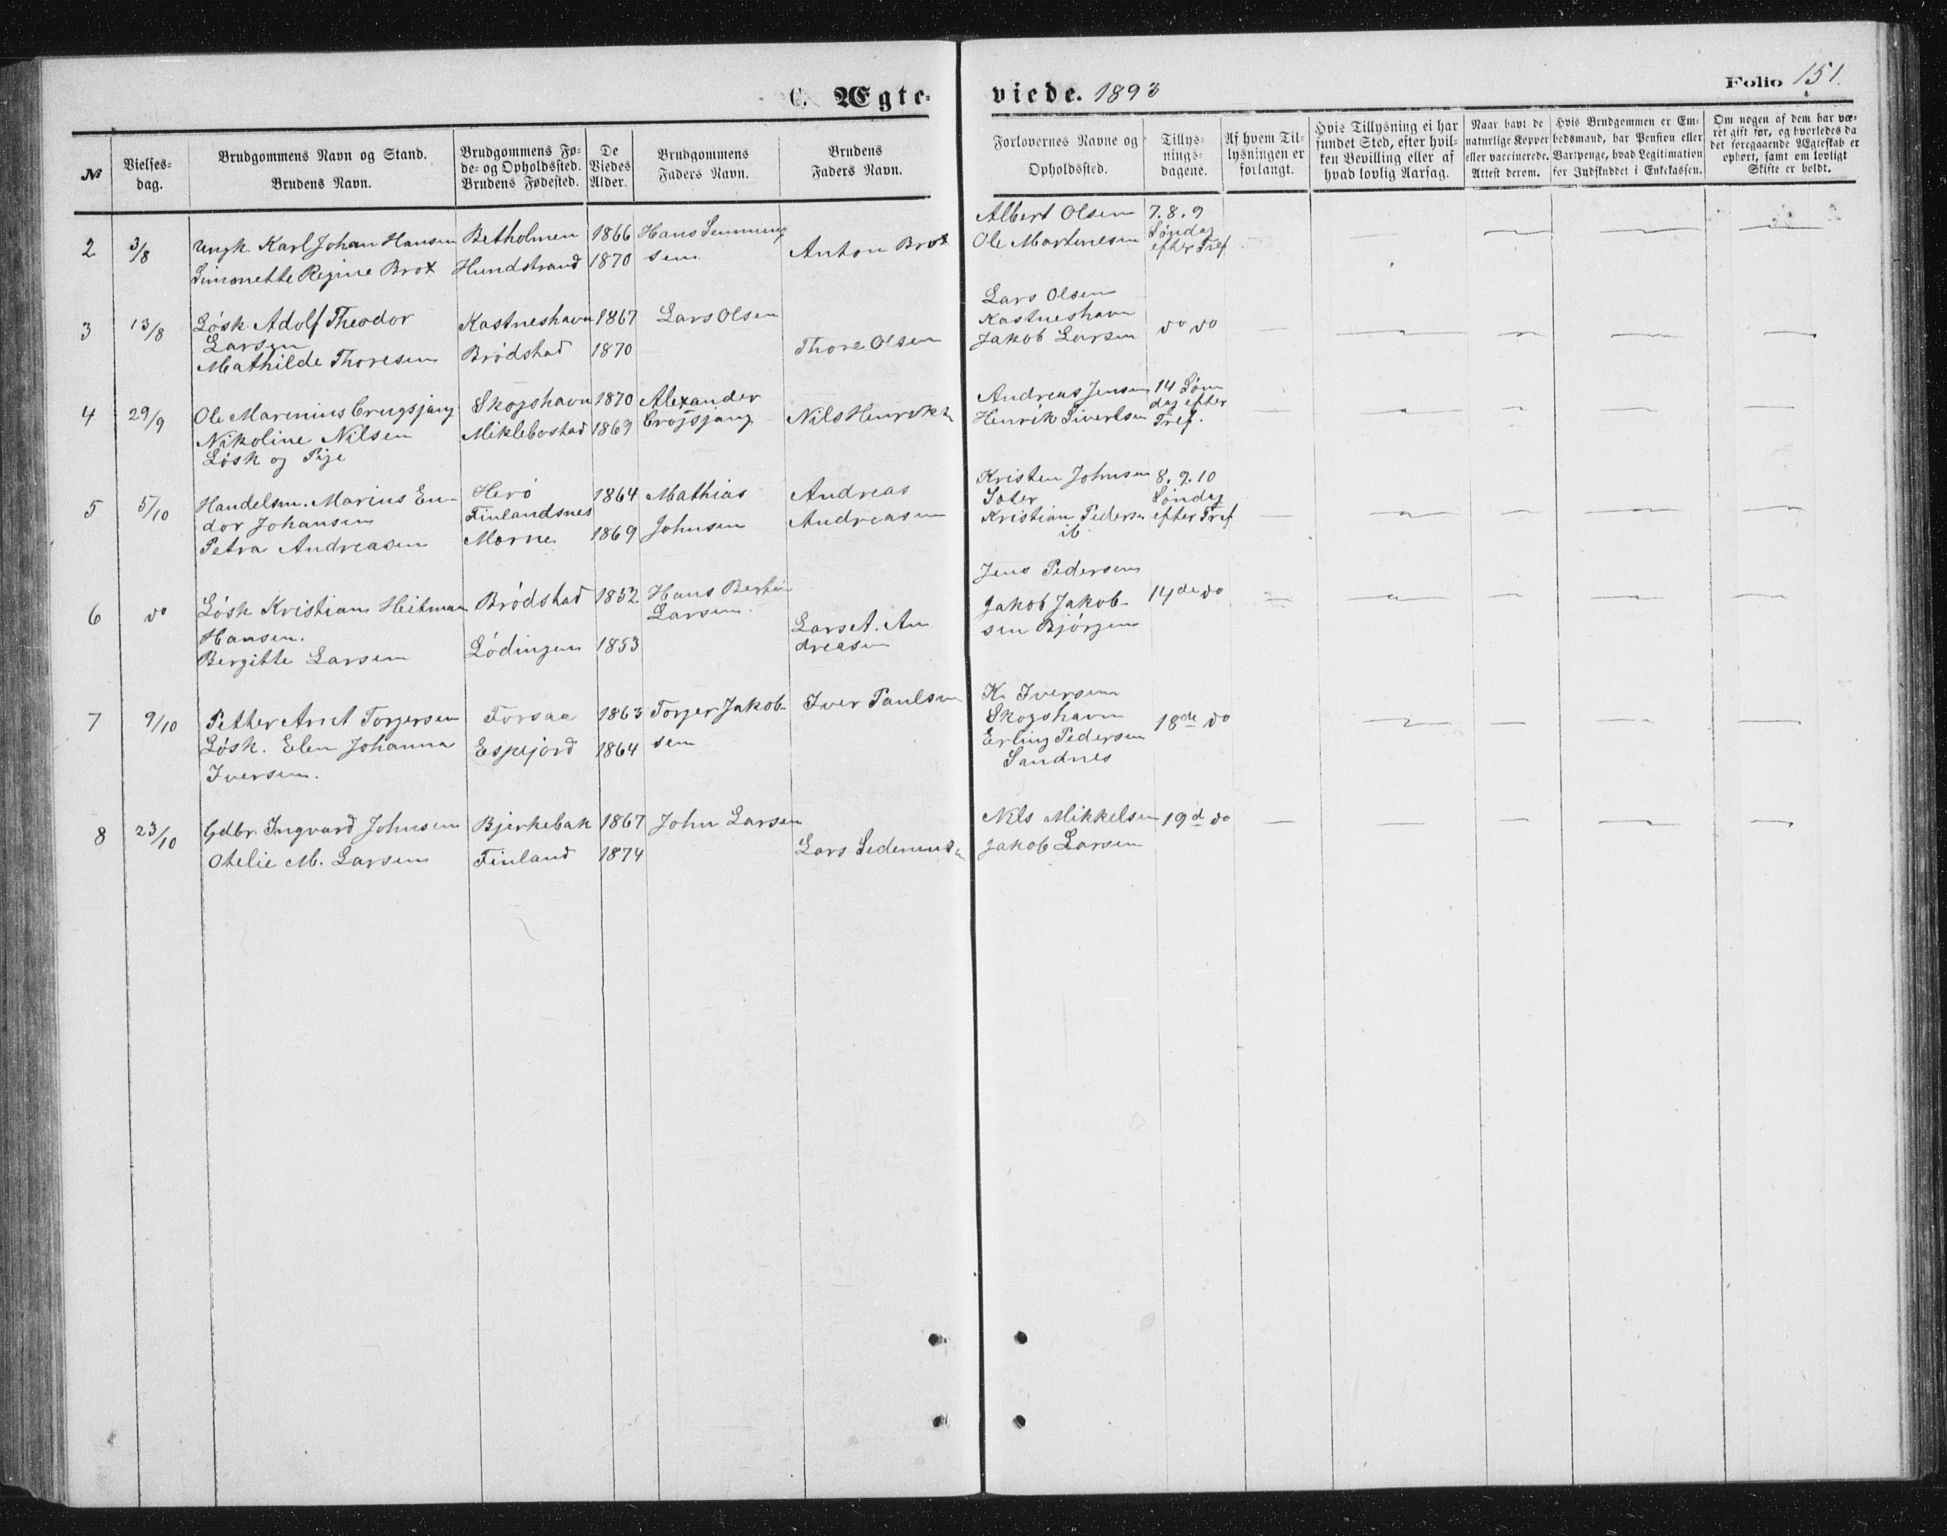 C. Ægte-
viede. 1893
Folio 151.
№
Vielses-
dag.
Brudgommens Navn og Stand.
Brudens Navn.
Brudgommens Fø-
de- og Opholdssted.
Brudens Fødested.
De
Viedes
Alder.
Brudgommens
Faders Navn.
Brudens
Faders Navn.
Forlovernes Navne og
Opholdssted.
Tillys-
nings-
dagene.
Af hvem Til-
lysningen er
forlangt.
Hvis Tillysning ei har
fundet Sted, efter hvil-
ken Bevilling eller af
hvad lovlig Aarsag.
Naar havt de
naturlige Kopper
eller vaccinerede.
Attest derom.
Hvis Brudgommen er Em-
bedsmand, har Pension eller
Vartpenge, hvad Legitimation
for Indskuddet i Enkekassen.
Om nogen af dem har væ-
ret gift før, og hvorledes da
det foregaaende Ægteskab er
ophørt, samt om lovligt
Skifte er holdt.
2 3/8
Ungk. Karl Johan Hansen
Simonette Regine Brox
Betholmen
Hundstrand
1866
1870
Hans
sen
Anton Brox
Albert Olsen
Ole Martinesen
7. 8. 9
Søndag
efter Tref
3 13/8
Løsk. Adolf Theodor
Larsen
Mathilde Thoresen
Kastneshavn
Brødstad
1867
1870
Lars Olsen
Thore Olsen
Lars Olsen
Kastneshavn
Jakob Larsen
do do
4 29/9
Ole Marinius
Nikoline Nilsen
Løsk og Pige
Skogshavn
Miklebostad
1870
1869
Alexander
Nils Henrik
Andreas Jensen
Henrik Sivertsen
14 Søn
dag efter
Tref.
5 5/10
Handelsm. Marius En-
dor Johansen
Petra Andreasen
Herø
Finlandsnes
Marne
1864
1869
Mathias
Johnsen
Andreas
Andreasen
Kristen Johnsen
Kristian Peders
ib.
8. 9. 10
Søndag
efter Tref
6 do
Løsk Kristian Heitman
Hansen.
Bergitte Larsen
Brødstad
Lødingen
1852
1853
Hans
Larsen.
Lars A. An
dreasen
Jens Pedersen
Jakob Jakob-
sen Bjørgen
14de do
7 9/10
Petter Arnt Torgersen
Løsk. Elen Johanna
Iversen.
Forsaa
Espejord
1863
1864
Torger Jakob-
sen
Iver Paulsen
K. Iversen
Skogshavn
Erling Pedersen
Sandnes
18de do
8 23/10
Gdbr. Ingvard Johnsen
Otelie M. Larsen
Bjerkebak
Finland
1867
1874
John Larsen
Lars
Nils Mikkelsen
Jakob Larsen
19d do